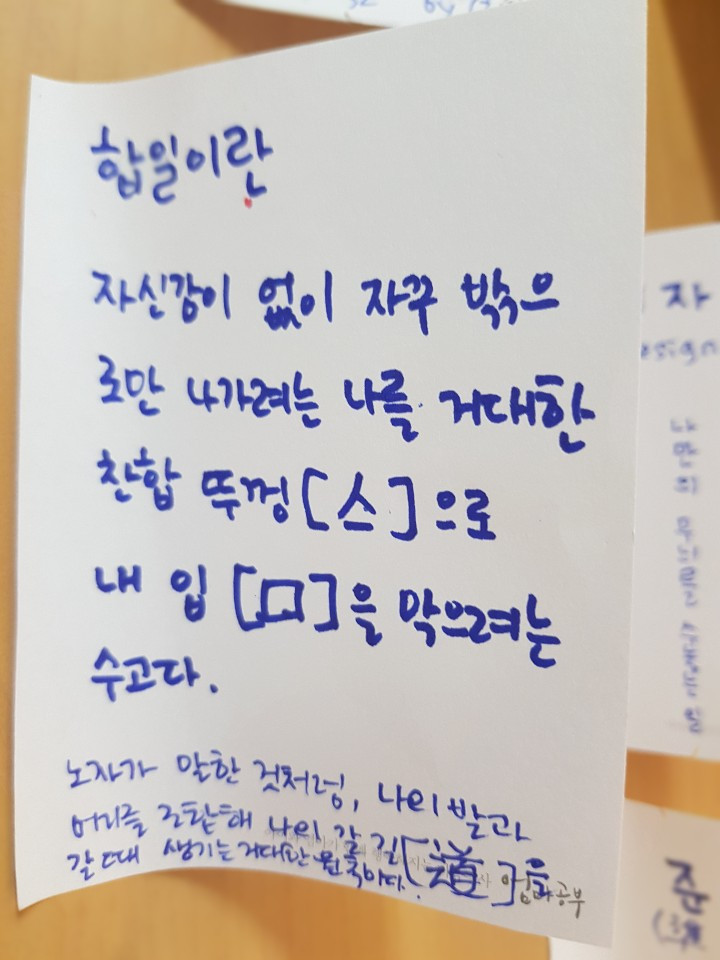 합일이란
자신감이 없이 자꾸 밖으
로만 나가려는 나를 거대한
찬합 뚜껑[스]으로
내 입 [口]을 막으려는
수고다.
노자가 말한 것처럼, 나의 발과
머리를 조합해 나의 갈 길[道]을
갈 때 생기는 거대한 원칙이다.
공부
자
esign
나만의
준